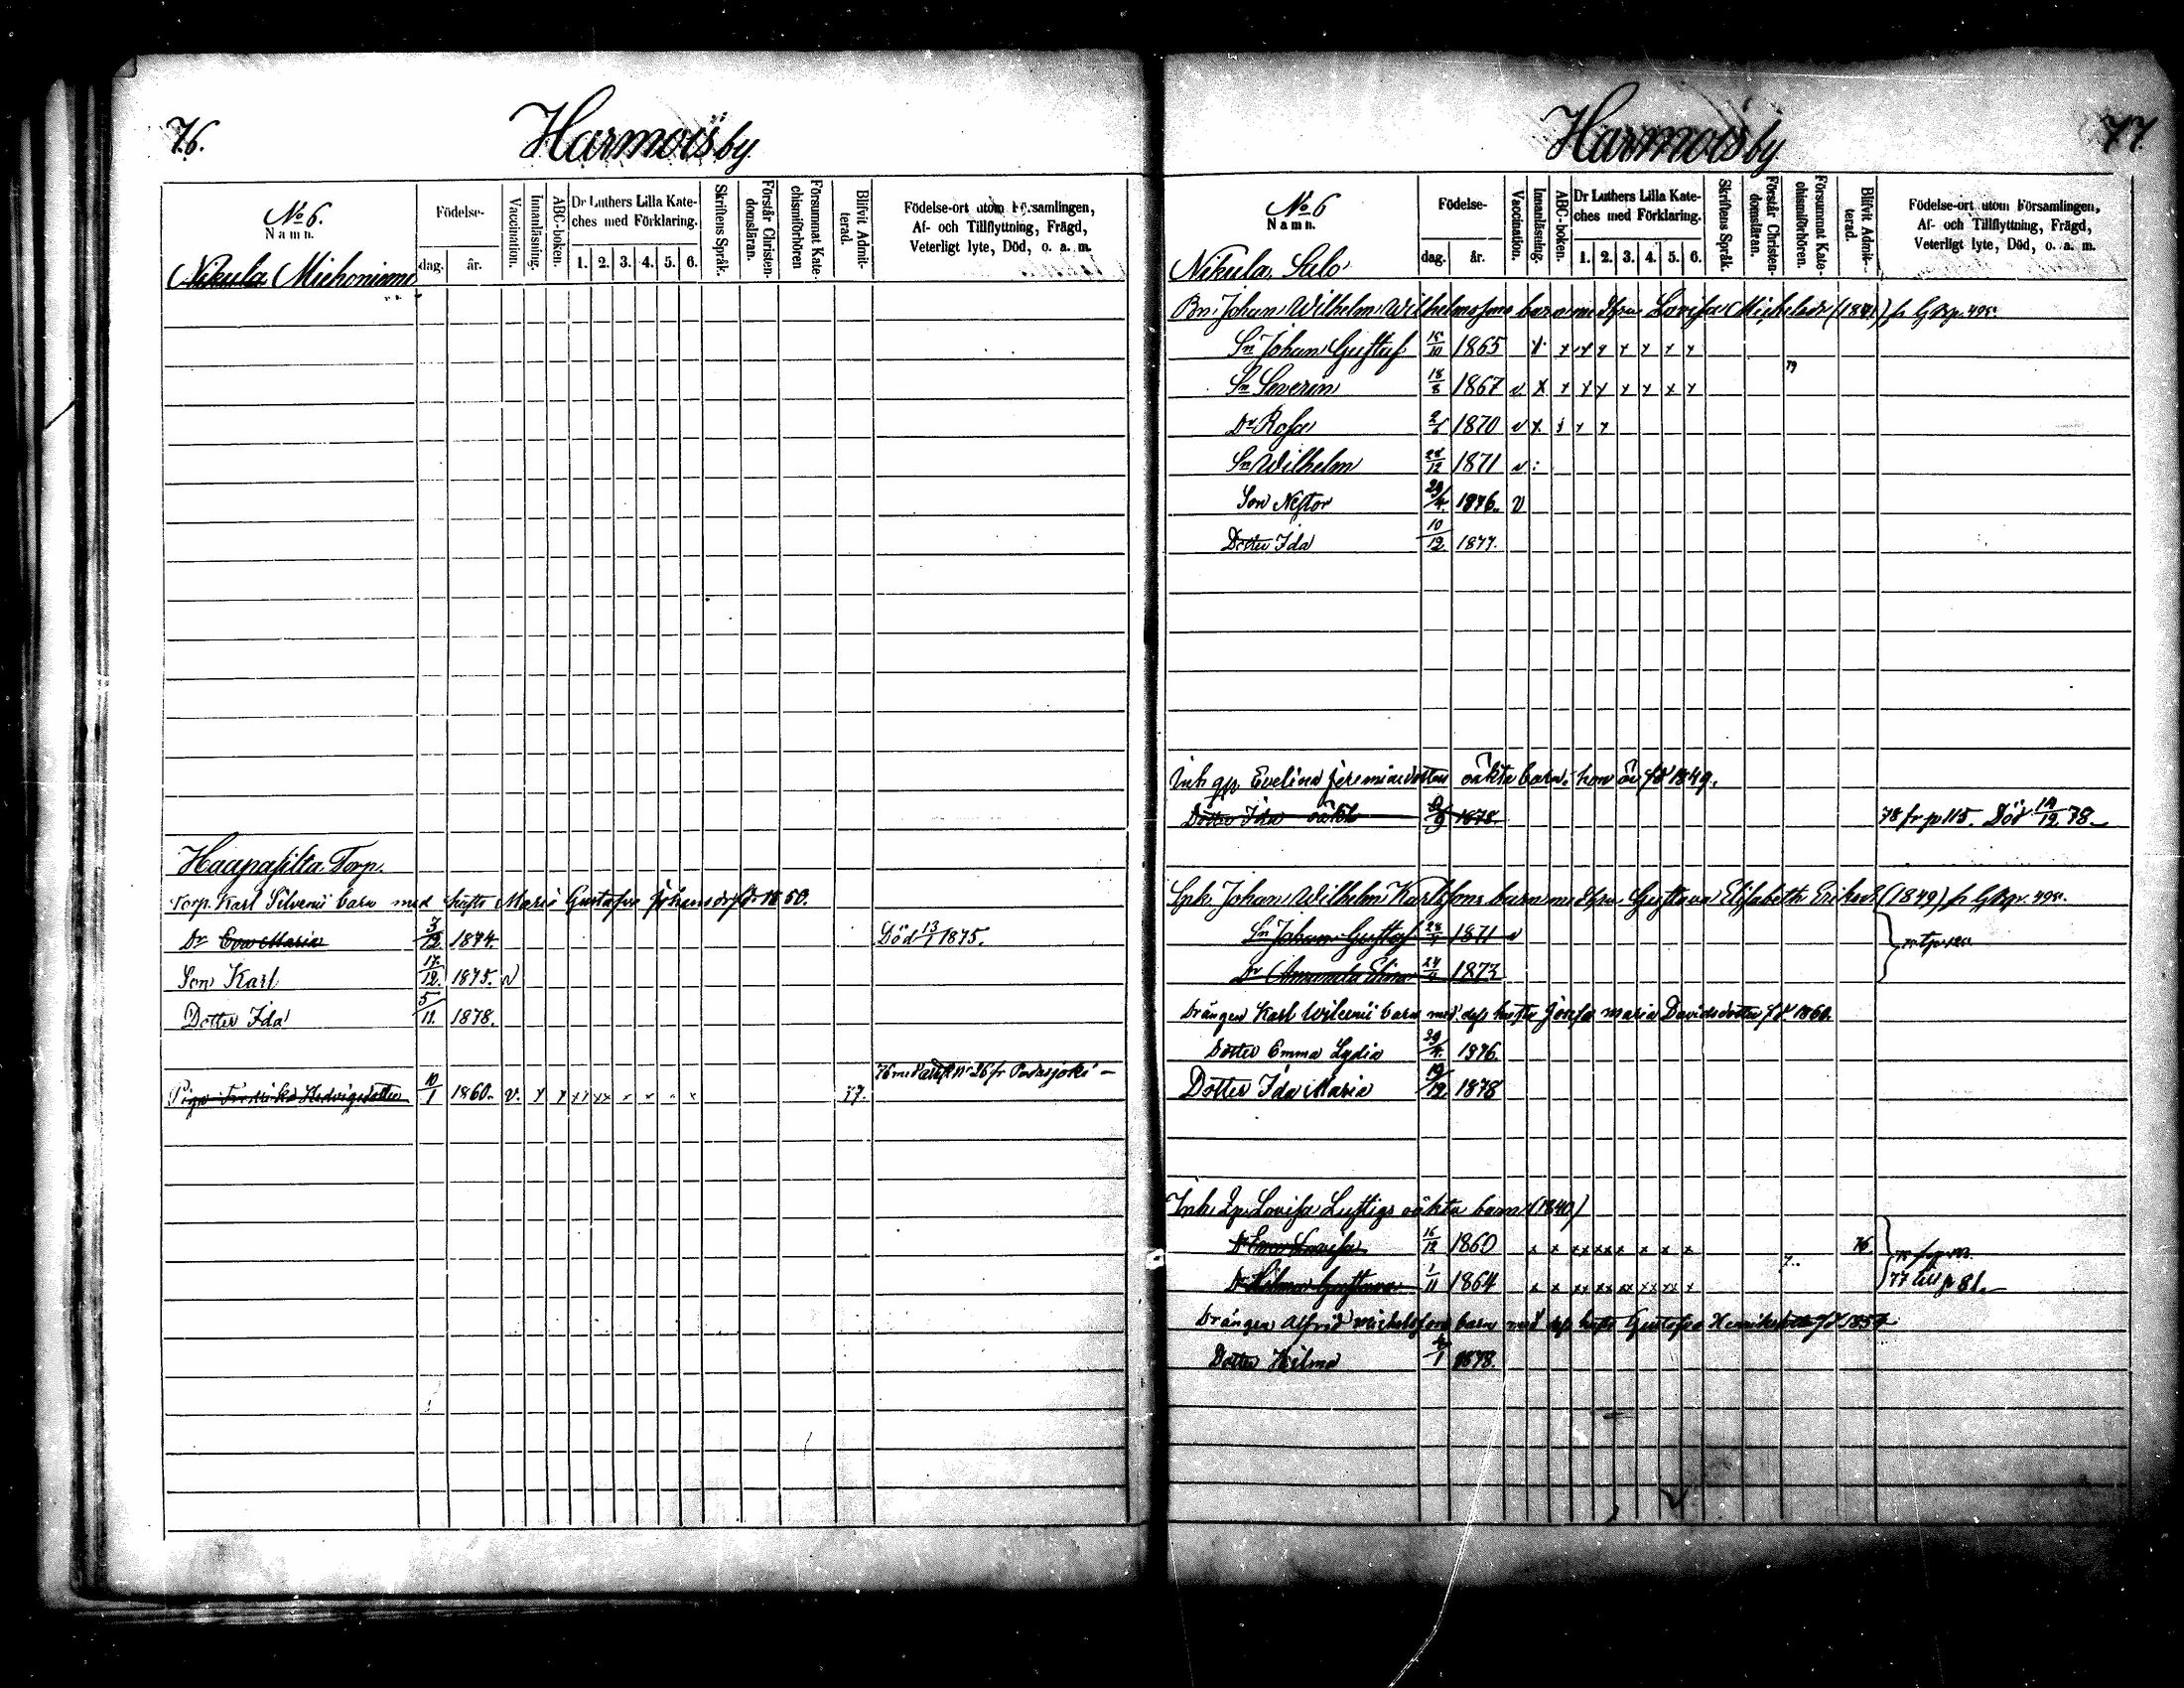 76.
Harmois by
No 6.
Namn.
Födelse-
dag.
år.
Vaccination.
Innanläsning.
ABC-boken.
Dr Luthers Lilla Kate-
ches med Förklaring.
1. 2. 3. 4. 5. 6.
Skriftens Språk.
Förstår Christen-
domsläran.
Försummat Kate-
chismiförhören
Blifvit Admit-
terad.
Födelse-ort utom Församlingen,
Af- och Tillflyttning, Frägd,
Veterligt lyte, Död, o. a. m.
Nikula
Haapasilta Torp.
Torp. Karl Silvenii barn med hustr Maria Gustafva Johansdr fdr 1850.
Dr Eva Maria 3/12 1874. Död 13/1 1875.
Son Karl 17/12. 1875. v
Dotter Ida 5/11. 1878.
76 med att No 26 fr Padasjoki
Piga Fredrika Hedvigsdotter 10/1 1860. v. x x xx xx x x x x 77.
77.
Harmois by
No 6
Namn.
Födelse-
dag.
år.
Vaccination.
Innanläsning.
ABC-boken.
Dr Luthers Lilla Kate-
ches med Förklaring.
1. 2. 3. 4. 5. 6.
Skriftens Språk.
Förstår Christen-
domsläran.
Försummat Kate-
chismiförhören.
Blifvit Admit-
terad.
Födelse-ort utom Församlingen,
Af- och Tillflyttning, Frägd,
Veterligt lyte, Död, o. a. m.
Nikula Salo
Bn. Johan Wilhelm Wilhelmssons barn med hru Lovisa Michelsdr (1841)
Sn Johan Gustaf 15/10 1865 x x x x x x x x
Sn Severin 18/8 1867 v. x x x x x x x x 79
Dr Rosa 2/6 1870 v x x x x
Sn Wilhelm 28/12 1871 v
Son Nestor 29/4. 1876. v
Dotter Ida 10/12 1877.
Inh qp Evelina Jeremiasdotters oäkta barn: hon är fd 1849.
Dotter Ida oäkta 9 1878. 78 fr p 115. Död 14/12 78
Johan Wilhelm Karlssons barn med hru Gustava Elisabeth Eriksdr (1849)
Sn Johan Gustaf 1871 v
Dr Amanda Elina 1873
Drängen Karl Wilenii barn med dess hustr Josefa Maria Davidsdotter fd 1860.
Dotter Emma Lydia 29/4. 1876.
Dotter Ida Maria 19/12. 1878
Inh. Lovisa Lustigs oäkta barn (1840)
Dr Eva Lovisa 16/12 1860 x x xx xx x x x x 76.
Dr Hilma Gustava 1/11 1864 x x xx xx xx xx xx x 77 till p 81.
Drängen Alfrid Michelssons barn med dess hustr Gustafva fd 1857
Dotter Hilma 1878.